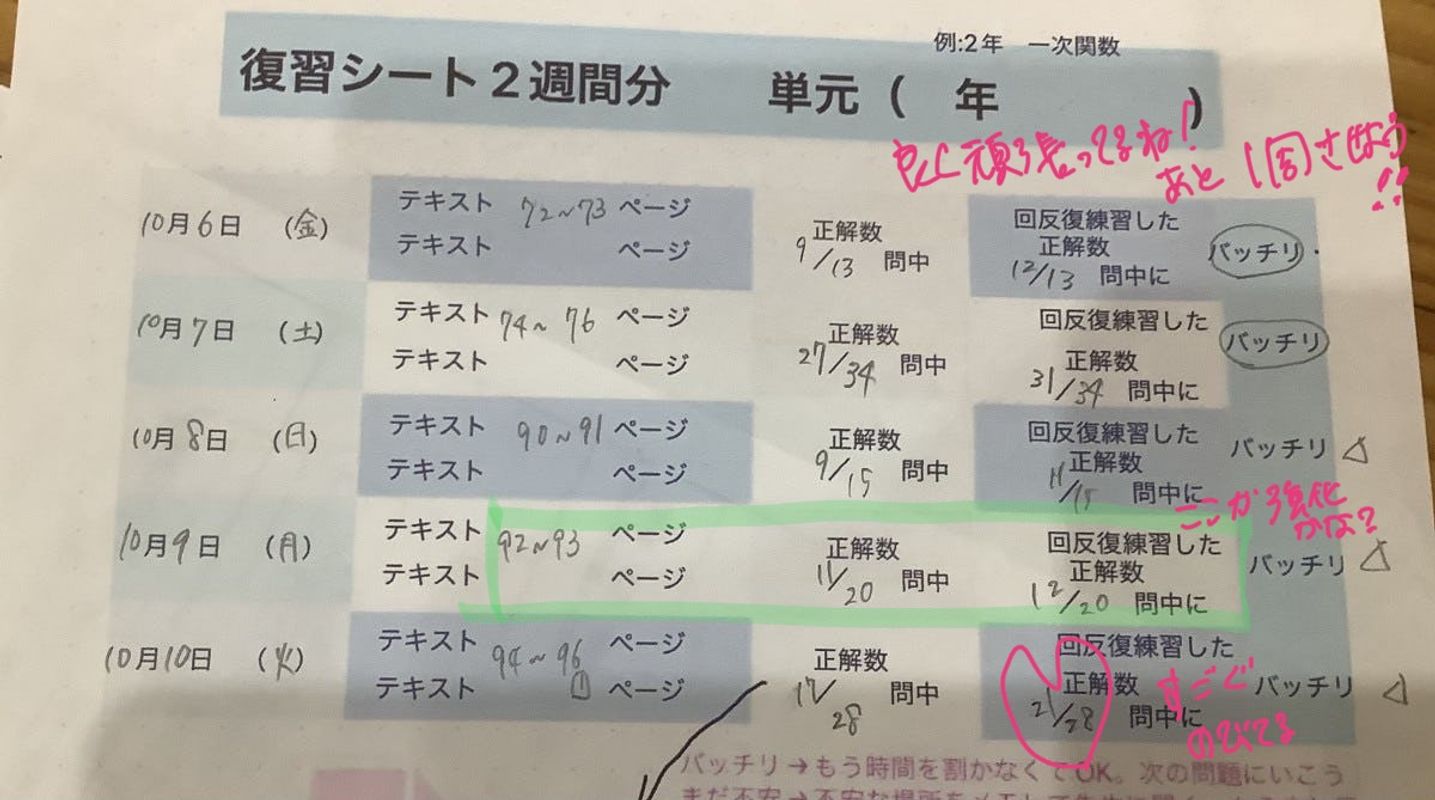 例:2年 一次関数
復習シート2週間分 単元( 年 )
良く頑張ってるね!
あと1周させよう!!
10月6日 (金)
テキスト 72~73 ページ
テキスト ページ
正解数
9/13 問中
回反復練習した
正解数
12/13 問中に
バッチリ
10月7日 (土)
テキスト 74~76 ページ
テキスト ページ
正解数
27/34 問中
回反復練習した
正解数
31/34 問中に
バッチリ
10月8日 (日)
テキスト 90~91 ページ
テキスト ページ
正解数
9/15 問中
回反復練習した
正解数
11/15 問中に
バッチリ △
10月9日 (月)
テキスト 92~93 ページ
テキスト ページ
正解数
11/20 問中
回反復練習した
正解数
12/20 問中に
ここが強化
かな?
バッチリ △
10月10日 (火)
テキスト 94~96 ページ
テキスト ページ
正解数
17/28 問中
回反復練習した
正解数
21/28 問中に
すごく
のびてる
バッチリ △
バッチリ→もう時間を割かなくてOK。次の問題にいこう